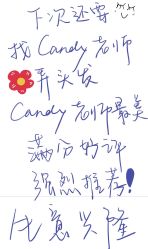 下次还要
找Candy老师
弄头发
Candy老师最美
满分好评
强烈推荐!
生意兴隆